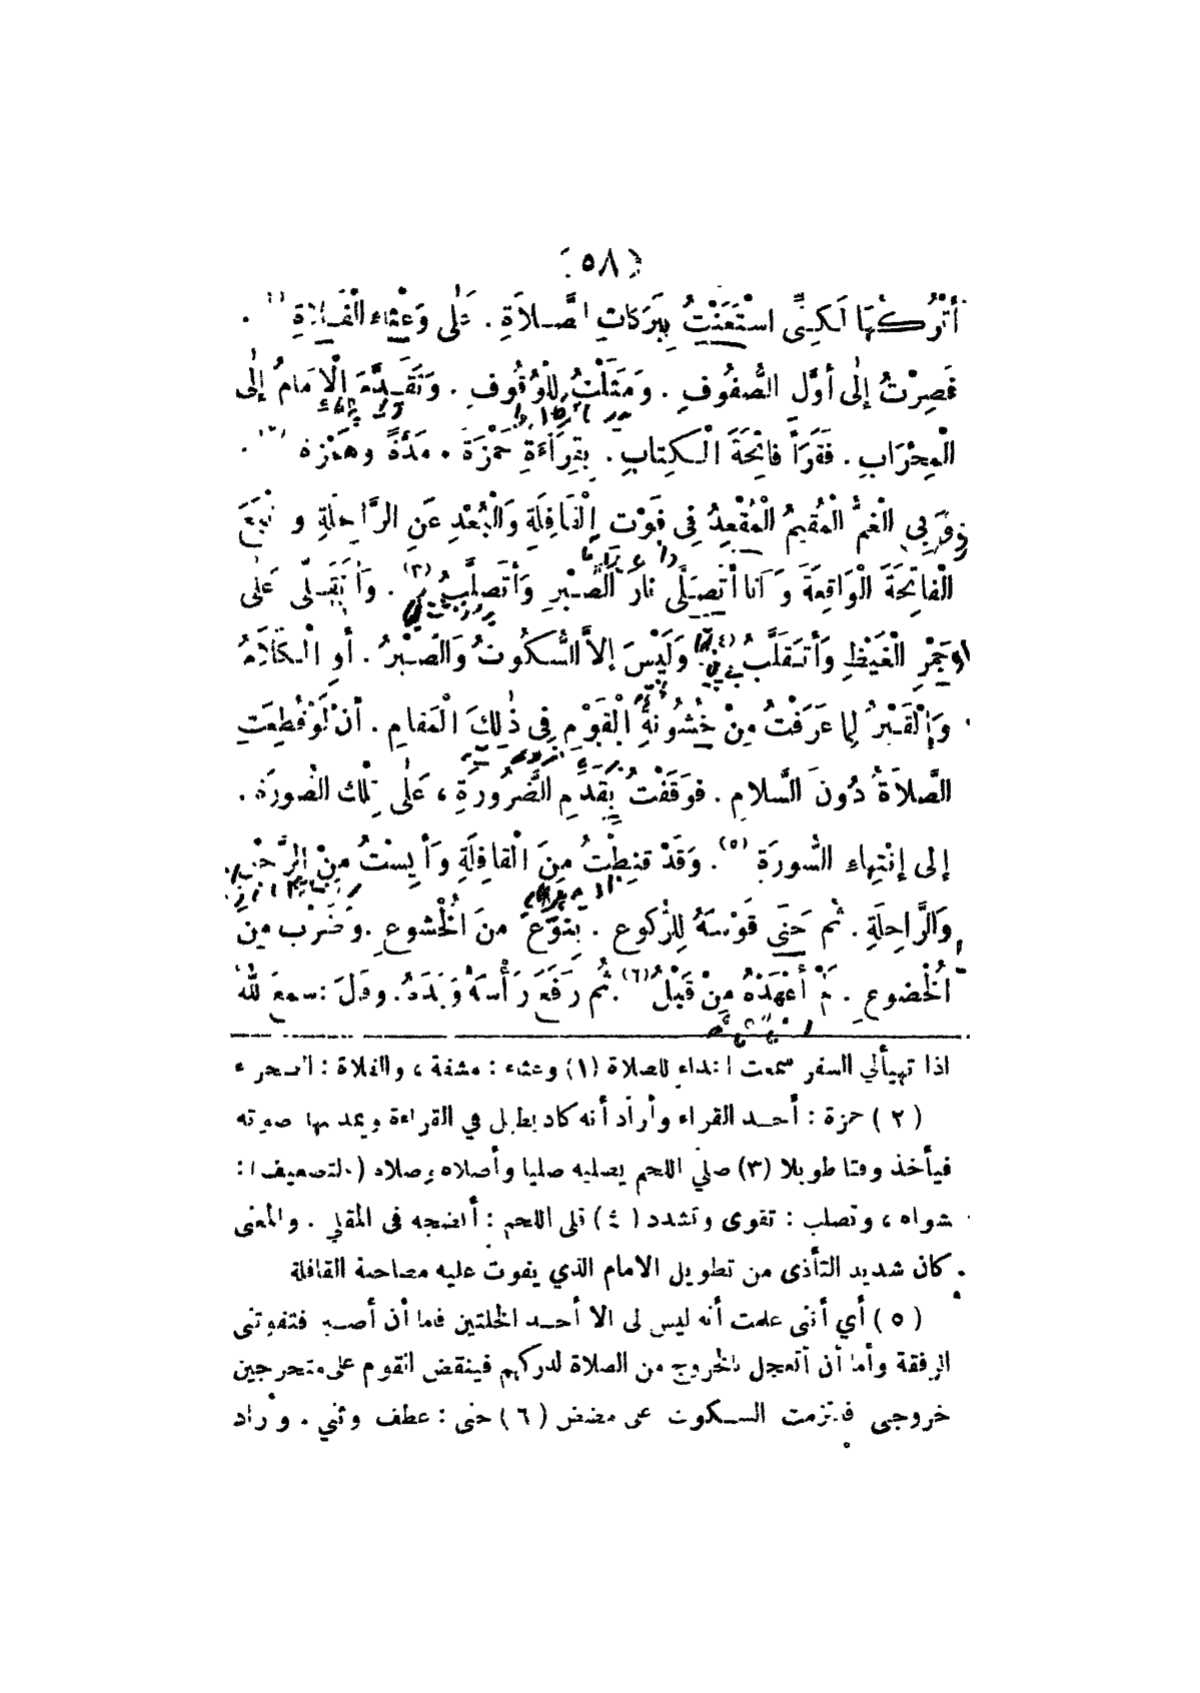 (٥٨)
أَتْرُكُهَا لَكِنِّي اسْتَعَنْتُ بِبَرَكَاتِ الصَّلاَةِ . عَلَى وَعْثاءِ الْفَلاَةِ (١) .
فَصِرْتُ إِلَى أَوَّلِ الصُّفُوفِ . وَمَثَلْتُ لِلْوُقُوفِ . وَتَقَدَّمَ الْإِمَامُ إِلَى
الْمِحْرَابِ . فَقَرَأَ فاتِحَةَ الْكِتابِ . بِقِرَاءَةِ حَمْزَةَ . مَدَّةً وهَمْزة (٢) .
وَبِي الْغَمُّ الْمُقِيمُ الْمُقْعِدُ فِي فَوْتِ الْقَافِلَةِ وَالْبُعْدِ عَنِ الرَّاحِلَةِ وَتْبَعَ
الْفاتِحَةَ الْوَاقِعَةَ وَأَنا أَتَصَلَّى نارَ الصَّبْرِ وَأَتَصَلَّبُ (٣) . وَأَتَقَلَّى عَلَى
جَمْرِ الْغَيْظِ وَأَتَقَلَّبُ (٤) وَلَيْسَ إِلاَّ السُّكُوتُ وَالصَّبْرُ . أَوِ الْكَلاَمُ
وَالْقَبْرُ لِما عَرَفْتُ مِنْ خُشُونَةِ الْقَوْمِ فِي ذٰلِكَ الْمَقامِ . أَنْ لَوْ قُطِعَتِ
الصَّلاَةُ دُونَ السَّلامِ . فوَقَفْتُ بِقَدَمِ الضَّرُورَةِ ، عَلَى تِلْكَ الصُّورَةِ .
إِلى إِنْتِهاءِ السُّورَةِ (٥) . وَقَدْ قنِطْتُ مِنَ الْقافِلَةِ وَأَيِسْتُ مِنَ الرَّحْلِ
وَالرَّاحِلَةِ . ثُم حَنَى قَوْسَهُ لِلرُّكوعِ . بِنَوْعٍ منَ الْخُشوعِ . وَضَرْبٍ مِنَ
الْخُضوعِ . لَمْ أَعْهَدْهُ مِنْ قَبْلُ (٦) . ثُم رَفَعَ رَأْسَهُ وَيَدَهُ . وقالَ : سمعَ اللهُ
اذا تهيألي السفر سمعت النداء للصلاة (١) وعثاء : مشقة ، والفلاة : الصحراء
(٢) حمزة : أحد القراء وأراد أنه كاد يطيل في القراءة ويمد بها صوته
فيأخذ وقتا طويلا (٣) صلي اللحم يصليه صليا وأصلاه وصلاه (بالتضعيف) :
شواه ، وتصلب : تقوى وتشدد (٤) قلى اللحم : أنضجه فى المقلى . والمعنى
كان شديد التأذى من تطويل الامام الذي يفوت عليه مصاحبة القافلة
(٥) أي أننى علمت أنه ليس لى الا أحد الخلتين فاما أن أصبر فتفوتنى
الرفقة وأما أن أتعجل بالخروج من الصلاة لادركهم فينقض القوم على متحرجين
خروجى فالتزمت السكوت على مضض (٦) حنى : عطف وثني . وأراد